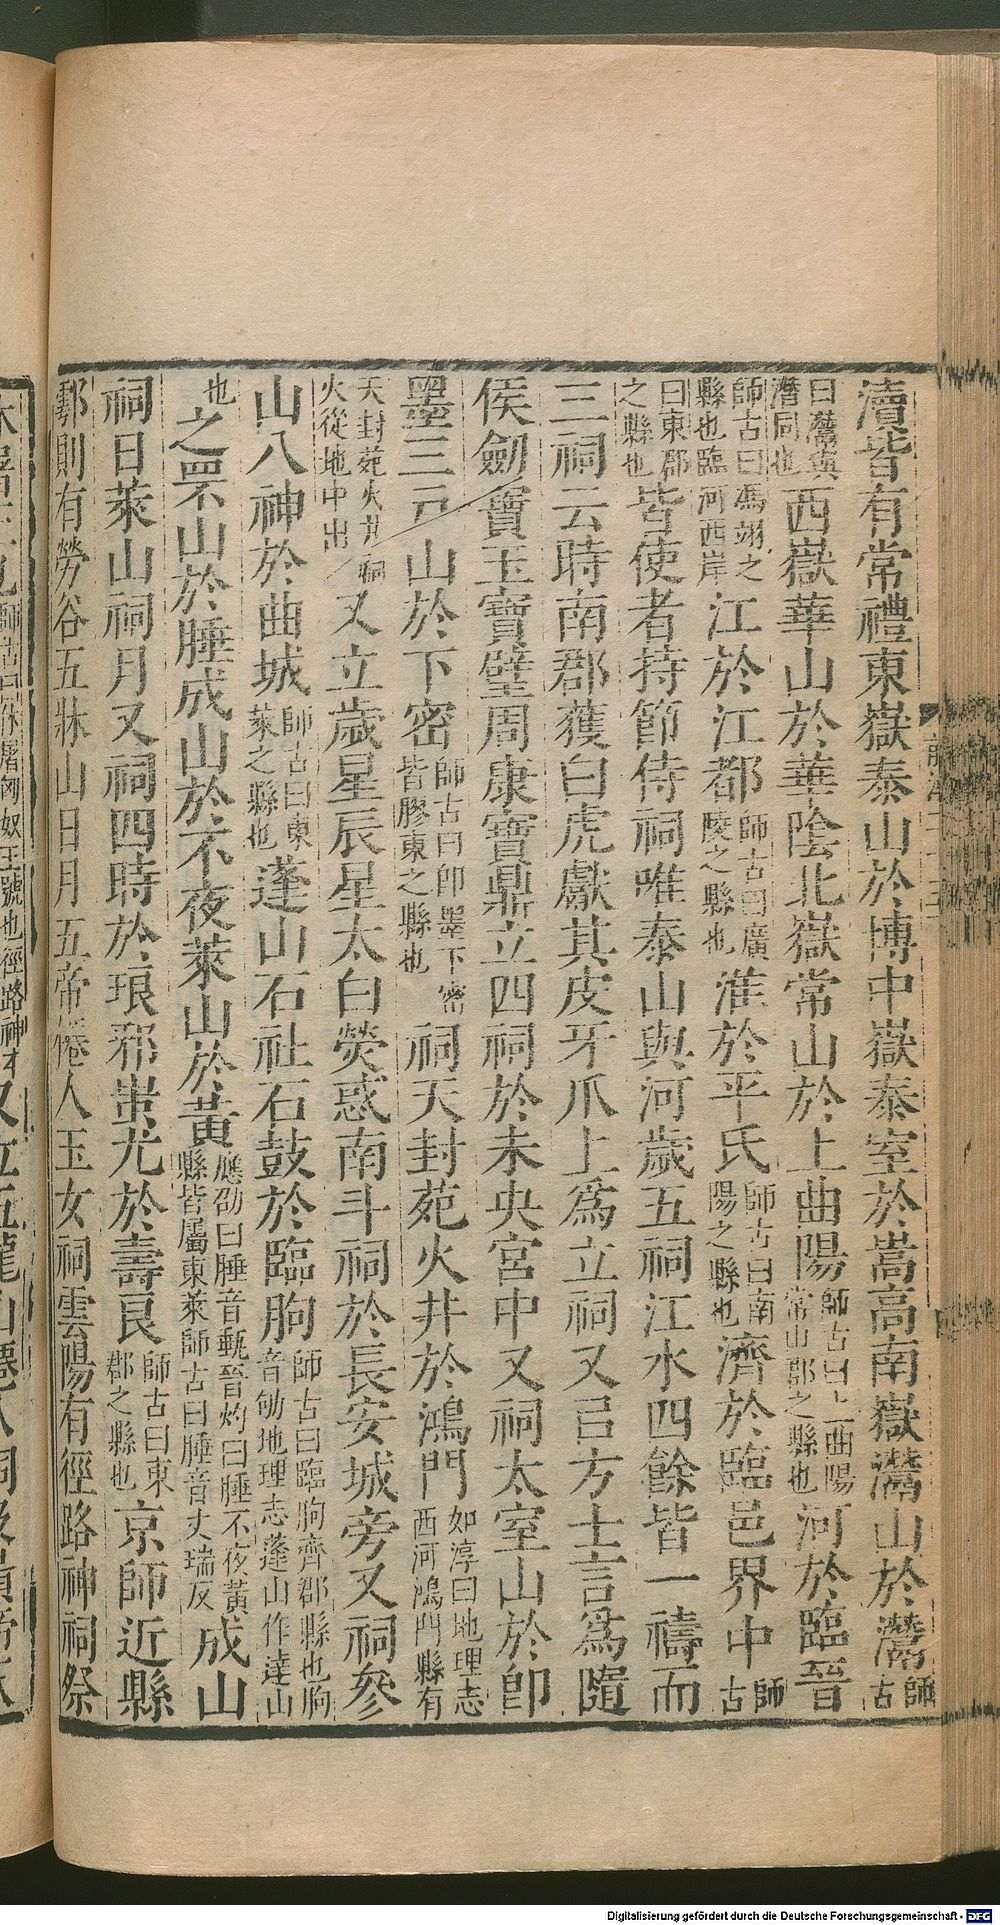 瀆皆有常禮東嶽泰山於博中嶽泰室於嵩高南嶽灊山於灊師古
曰灊與潛同也西嶽華山於華陰北嶽常山於上曲陽師古曰上曲陽常山郡之縣也河於臨晉
師古曰馮翊之縣也臨河西岸江於江都師古曰廣陵之縣也淮於平氏師古曰南陽之縣也濟於臨邑界中師古
曰東郡之縣也皆使者持節侍祠唯泰山與河歲五祠江水四餘皆一禱而
三祠云時南郡獲白虎獻其皮牙爪上為立祠又㠯方士言為隨
侯劒寶玉寶璧周康寶鼎立四祠於未央宮中又祠太室山於即
墨三戶山於下密師古曰即墨下密皆膠東之縣也祠天封苑火井於鴻門如淳曰地理志西河鴻門縣有
天封苑火井祠火從地中出又立歲星辰星太白熒惑南斗祠於長安城旁又祠參
山八神於曲城師古曰東萊之縣也蓬山石社石鼓於臨朐師古曰臨朐齊郡縣也朐音劬地理志蓬山作達山
也之罘山於腄成山於不夜萊山於黃應劭曰腄音甀晉灼曰腄不夜黃縣皆屬東萊師古曰腄音丈瑞反成山
祠日萊山祠月又祠四時於琅邪蚩尤於壽良師古曰東郡之縣也京師近縣
鄠則有勞谷五牀山日月五帝僊人玉女祠雲陽有徑路神祠祭
師古曰休屠匈奴王號也徑路神
Digitalisierung gefördert durch die Deutsche Forschungsgemeinschaft - DFG